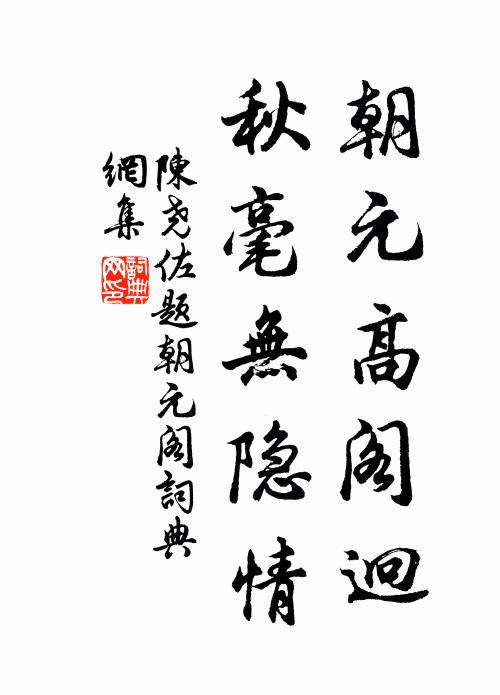 朝元高阁迥
秋毫無隐情
陳尧佐題朝元阁詞典
網集
詞典
网印